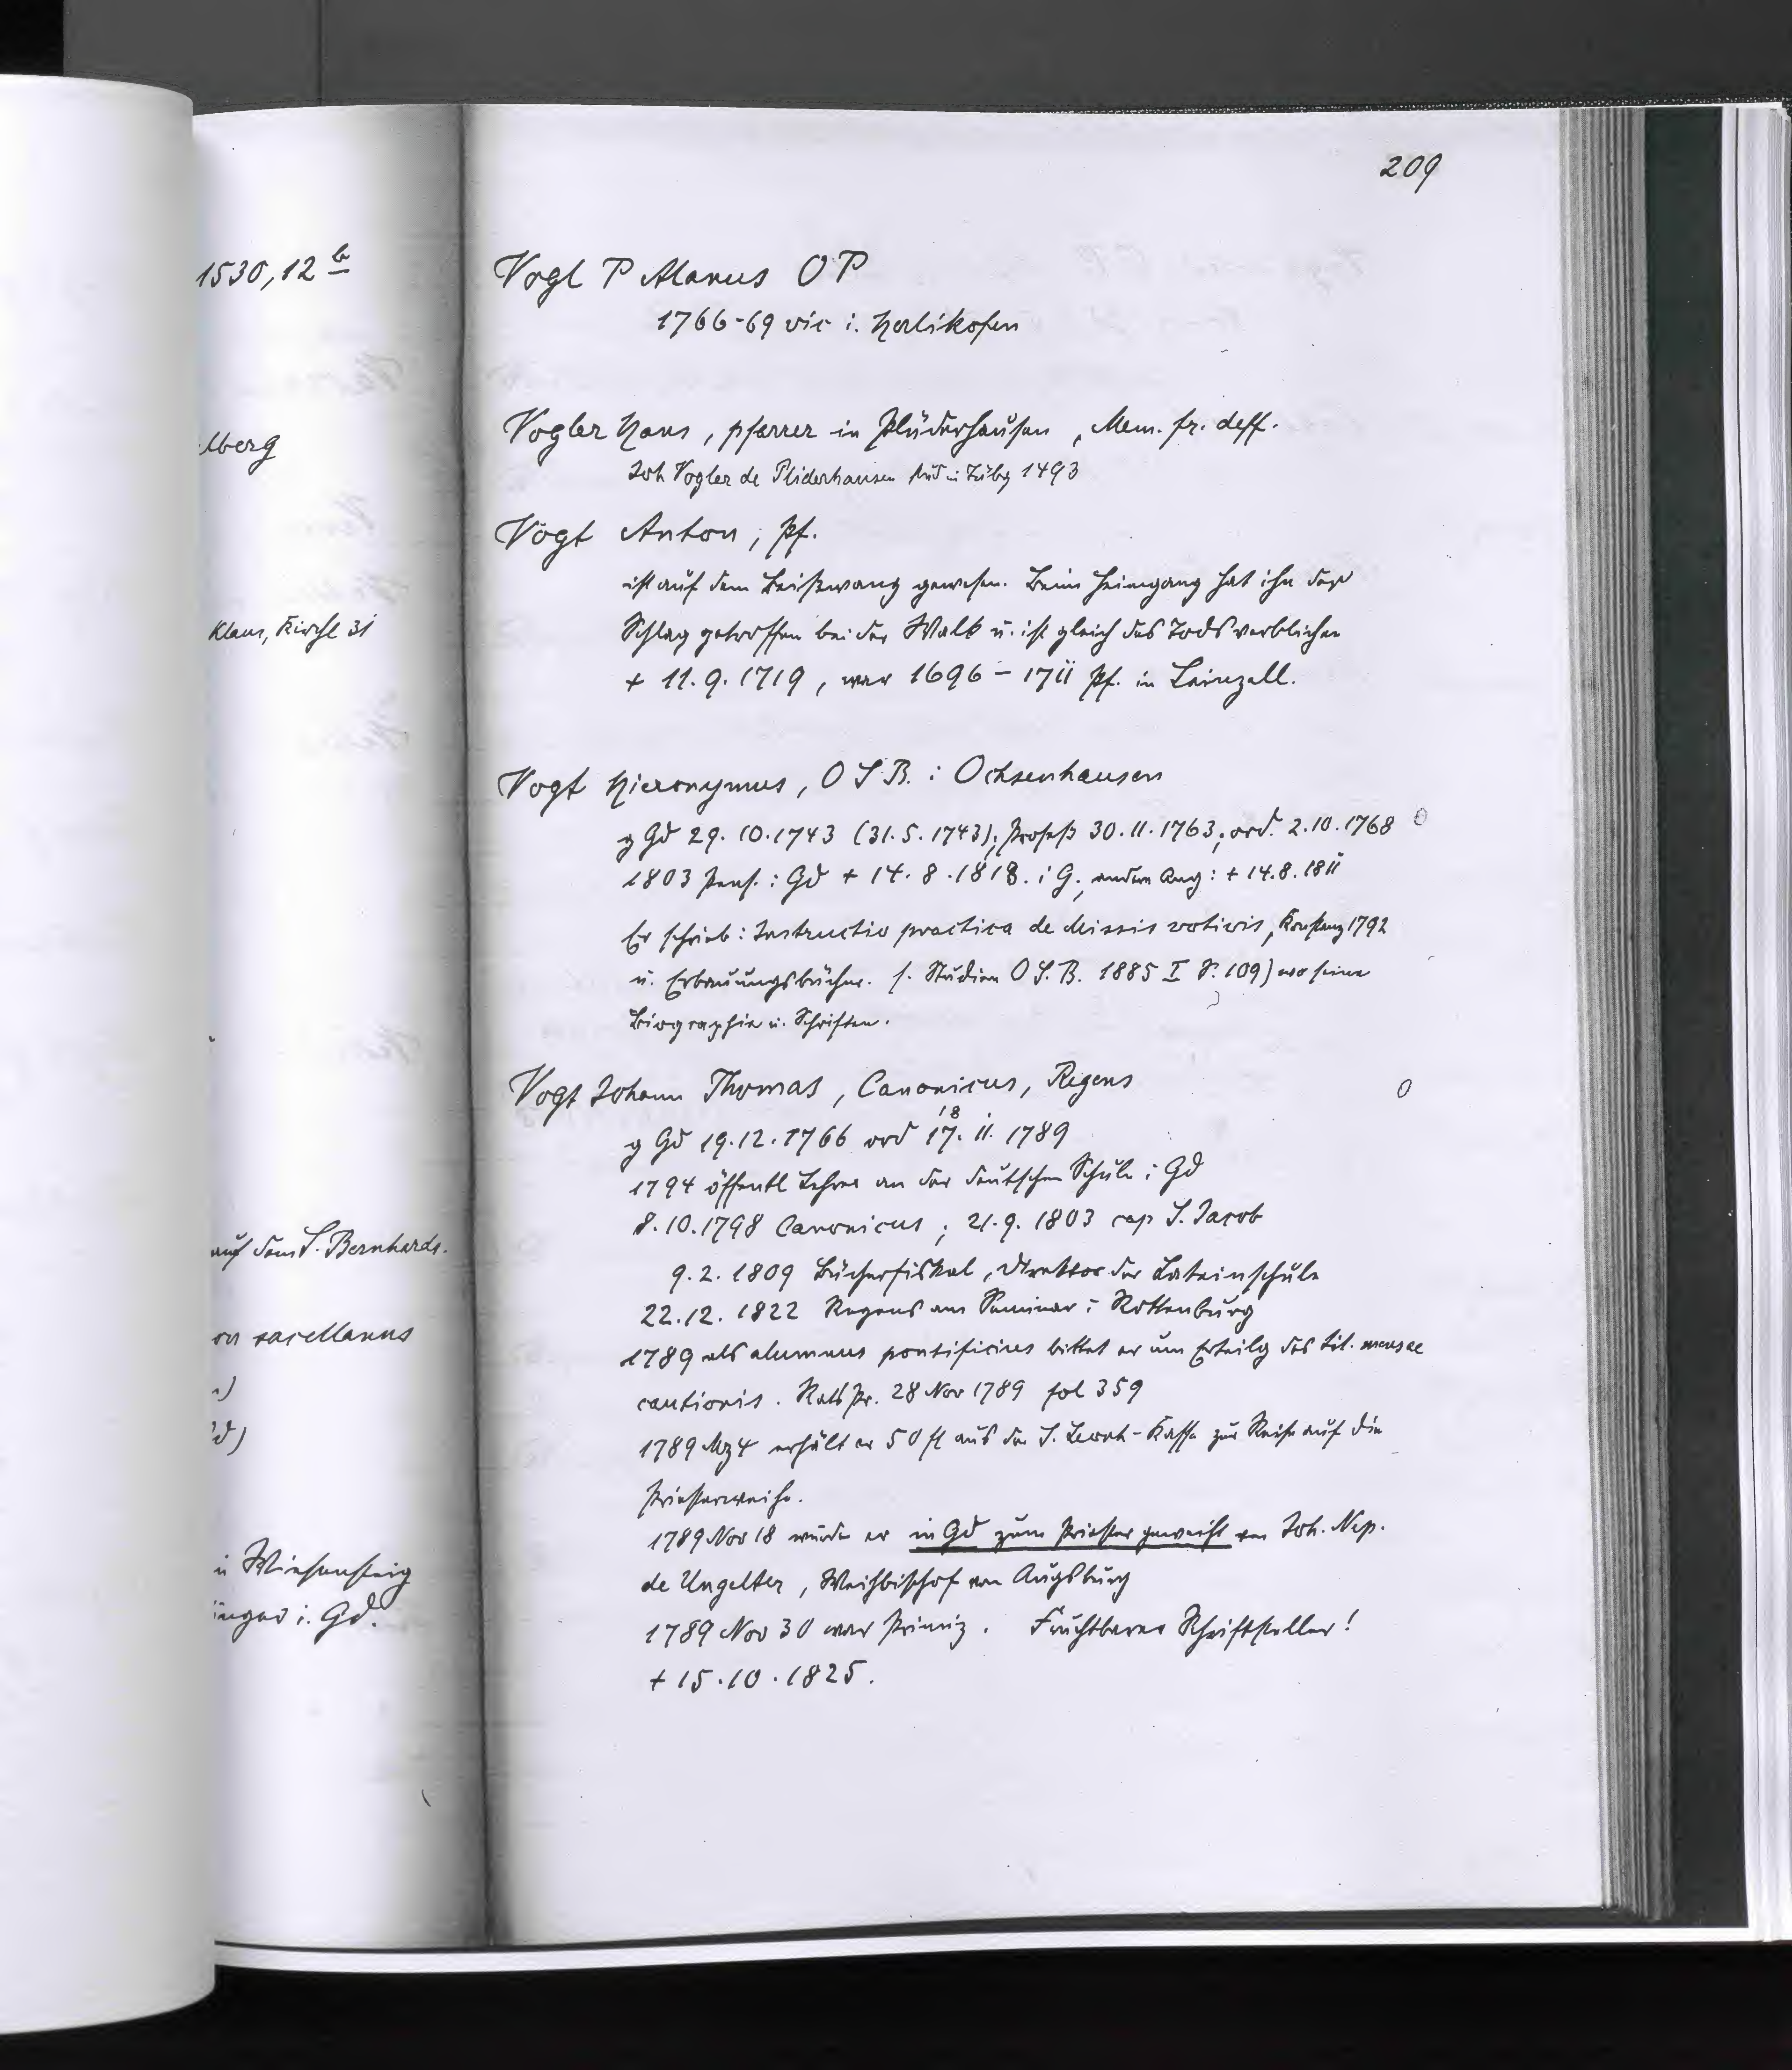 209
1530, 12 b
lberg
Klaus, Kirchl 31
auf dem S. Bernhards.
on sacellanus
i Wiesensteig
inger i. Gd.
Vogl P Alanus OP
1766-69 vic i. Herlikofen
Vogler Hans, pfarrer in Plüderhausen, Mem. fr. deff.
Joh Vogler de Pliderhausen stud in Tübg 1493
Vogt Anton, Pf.
ist auf dem Beißwang gewesen. Beim Heimgang hat ihn der
Schlag getroffen bei der Walk u. ist gleich des Tods verblichen
+ 11.9.1719, war 1696 - 1711 Pf. in Leinzell.
Vogt Hieronymus, O S B. i Ochsenhausen
g Gd 29.10.1743 (31.5.1743), Profeß 30.11.1763, ord. 2.10.1768 0
1803 Pens. i Gd + 14.8.1818. i G., andere Ang: + 14.8.1811
Er schrieb: Instructio practica de Missis votivis, Konstanz 1792
u. Erbauungsbücher. s. Studien O S. B. 1885 I S. 109) wo seine
Biographie u. Schriften.
Vogt Johann Thomas, Canonicus, Regens 0
18
g Gd 19.12.1766 ord 17. 11. 1789
1794 öffentl Lehrer an der deutschen Schule i Gd
8.10.1798 Canonicus; 21.9.1803 cap S. Jacob
9.2.1809 Bücherfiskal, Direktor der Lateinschule
22.12.1822 Regens am Seminar i Rottenburg
1789 als alumnus pontificius bittet er um Erteilg des tit. mensae
cautionis. Rats Pr. 28 Nov 1789 fol 359
1789 Mz 4 erhält er 50 fl aus der S. Leonh-Kasse zur Reise auf die
Priesterweihe.
1789 Nov 18 wurde er in Gd zum Priester geweiht von Joh. Nep.
de Ungelter, Weihbischof von Augsburg
1789 Nov 30 war Primiz. Fruchtbarer Schriftsteller!
+ 15.10.1825.